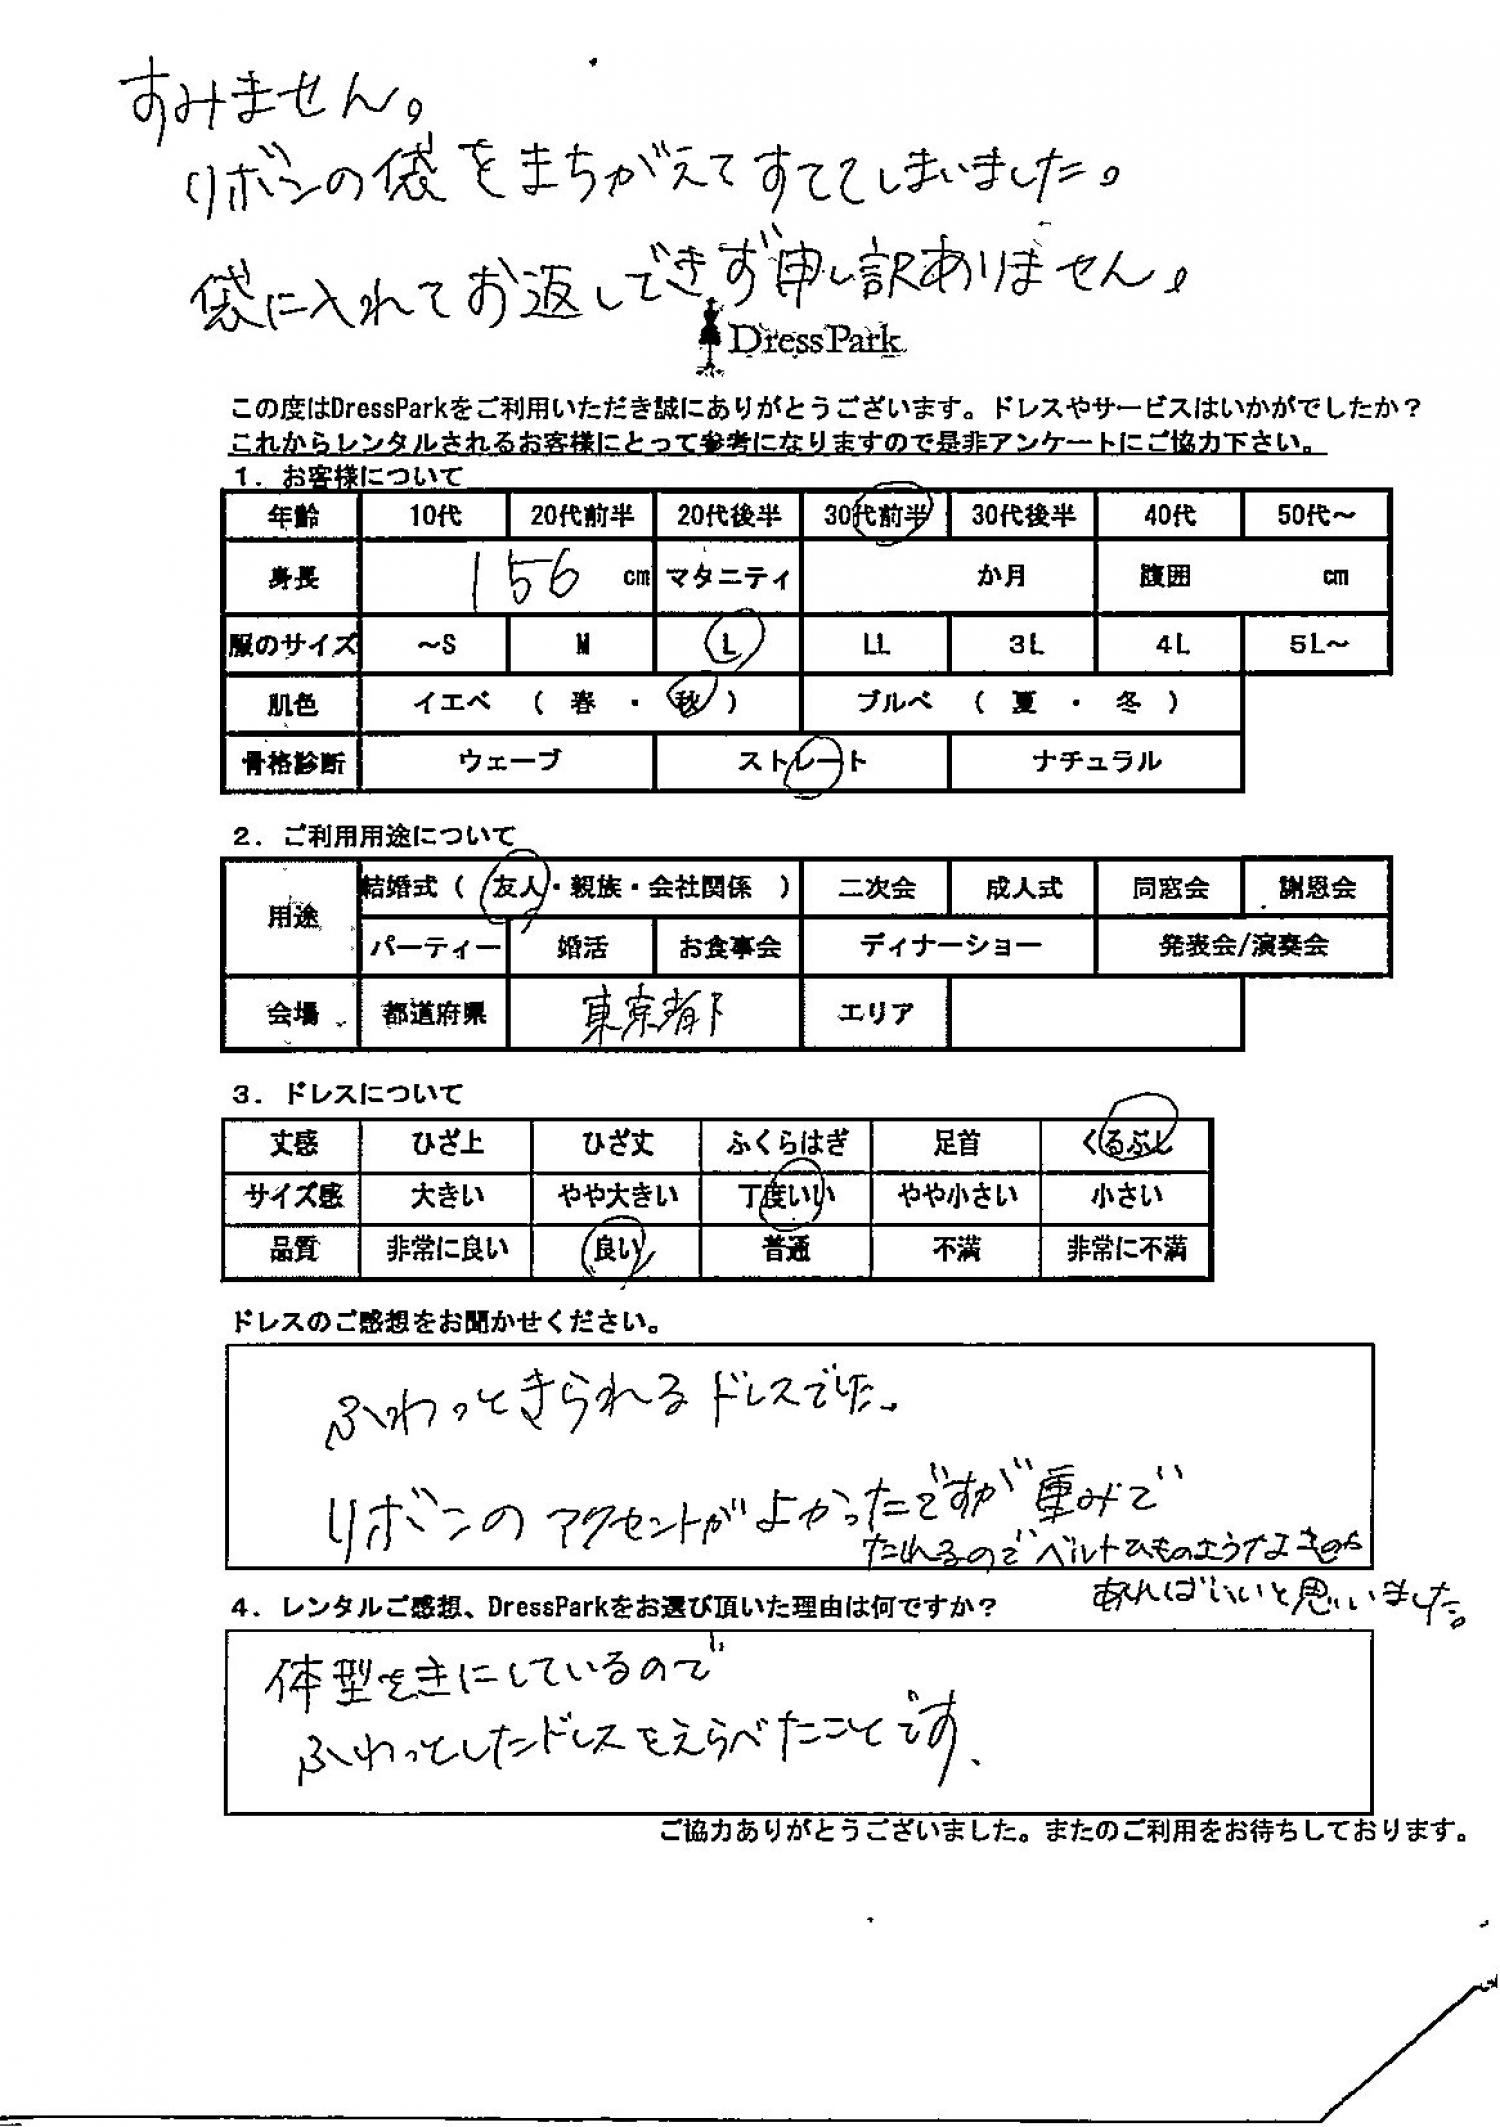 すみません。
リボンの袋をまちがえてすててしまいました。
袋に入れてお返しできず申し訳ありません。
DressPark
この度はDressParkをご利用いただき誠にありがとうございます。ドレスやサービスはいかがでしたか？
これからレンタルされるお客様にとって参考になりますので是非アンケートにご協力下さい。
１．お客様について
年齢 10代 20代前半 20代後半 30代前半 30代後半 40代 50代～
身長 156 cm マタニティ か月 腹囲 cm
服のサイズ ～S M L LL 3L 4L 5L～
肌色 イエベ （ 春 ・ 秋 ） ブルベ （ 夏 ・ 冬 ）
骨格診断 ウェーブ ストレート ナチュラル
２．ご利用用途について
用途 結婚式（ 友人・親族・会社関係 ） 二次会 成人式 同窓会 謝恩会
パーティー 婚活 お食事会 ディナーショー 発表会/演奏会
会場 都道府県 東京都 エリア
３．ドレスについて
丈感 ひざ上 ひざ丈 ふくらはぎ 足首 くるぶし
サイズ感 大きい やや大きい 丁度いい やや小さい 小さい
品質 非常に良い 良い 普通 不満 非常に不満
ドレスのご感想をお聞かせください。
ふわっときられるドレスでした。
リボンのアクセントがよかったですが重みで
たれるのでベルトひものようなものが
あればいいと思いました。
４．レンタルご感想、DressParkをお選び頂いた理由は何ですか？
体型をきにしているので
ふわっとしたドレスをえらべたことです、
ご協力ありがとうございました。またのご利用をお待ちしております。